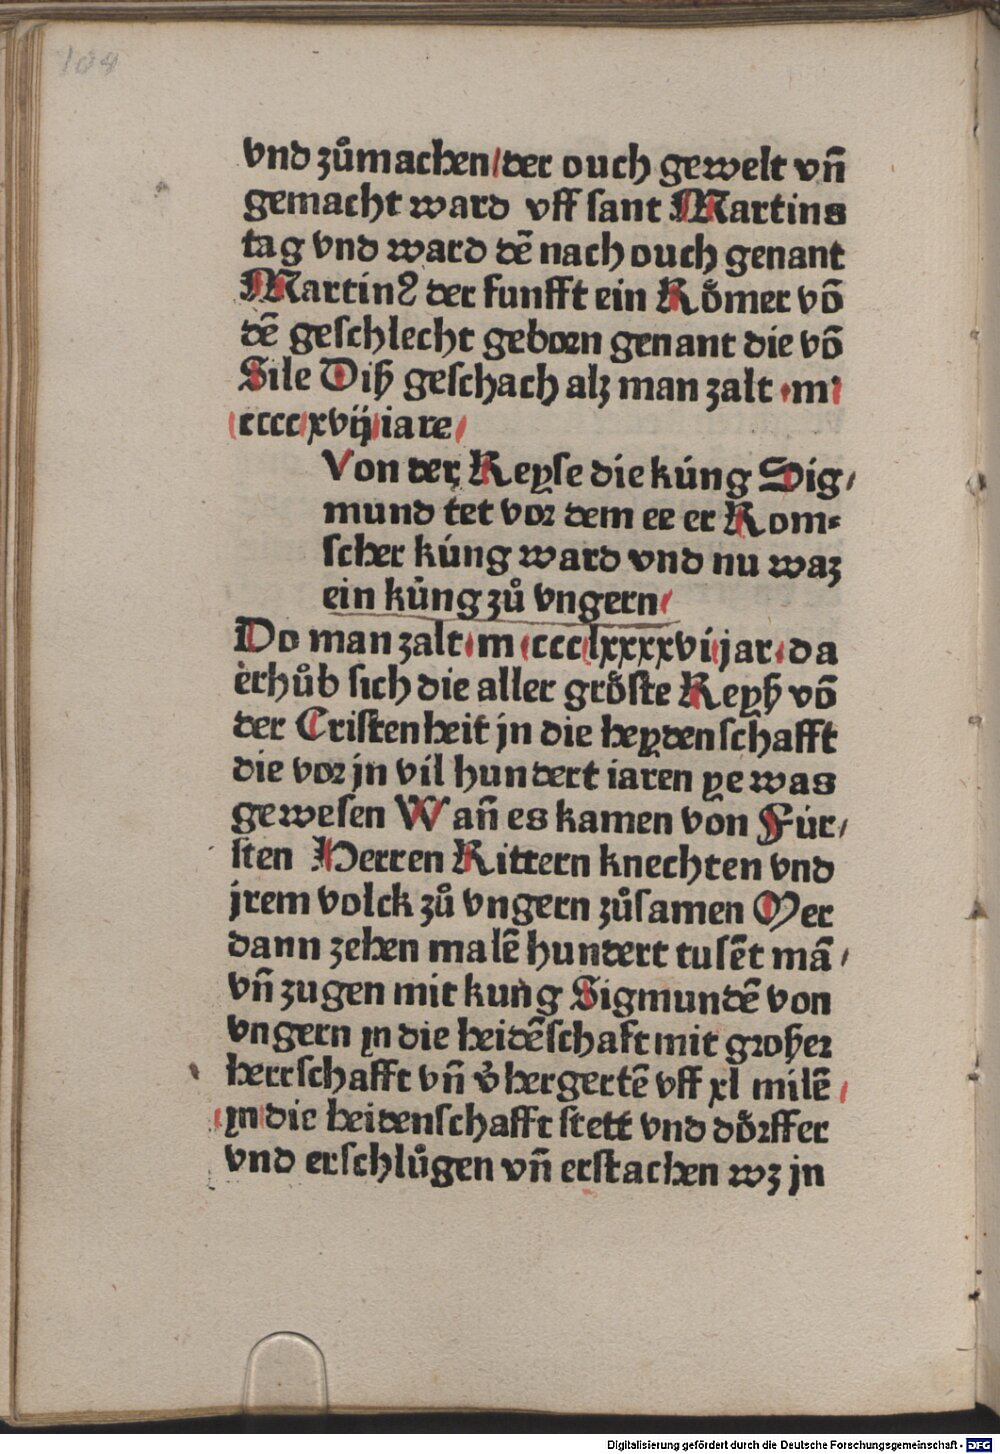 104
vnd zůmachen/der ouch gewelt vn̄
gemacht ward vff sant Martins
tag vnd ward dē nach ouch genant
Martinꝰ der funfft ein Rőmer vō
dē geschlecht geborn genant die vō
Sile Diß geschach alz man zalt .m
cccc xvij iare
Von der Reyse die kúng Sig/
mund tet vor dem ee er Rom=
scher kúng ward vnd nu waz
ein kúng zů vngern
Do man zalt.m ccc lxxxxvi jar.da
erhůb sich die aller grőste Reyß vō
der Cristenheit jn die heydenschafft
die vor jn vil hundert iaren ye was
gewesen Wan̄ es kamen von Fúr/
sten Herren Rittern knechten vnd
jrem volck zů vngern zůsamen Mer
dann zehen malē hundert tusēt mā/
vn̄ zugen mit kung Sigmundē von
vngern yn die heidēschaft mit großer
herrschafft vn̄ v̊hergertē vff xl milē
yn die heidenschafft stett vnd dőrffer
vnd erschlůgen vn̄ erstachen wz jn
Digitalisierung gefördert durch die Deutsche Forschungsgemeinschaft - DFG